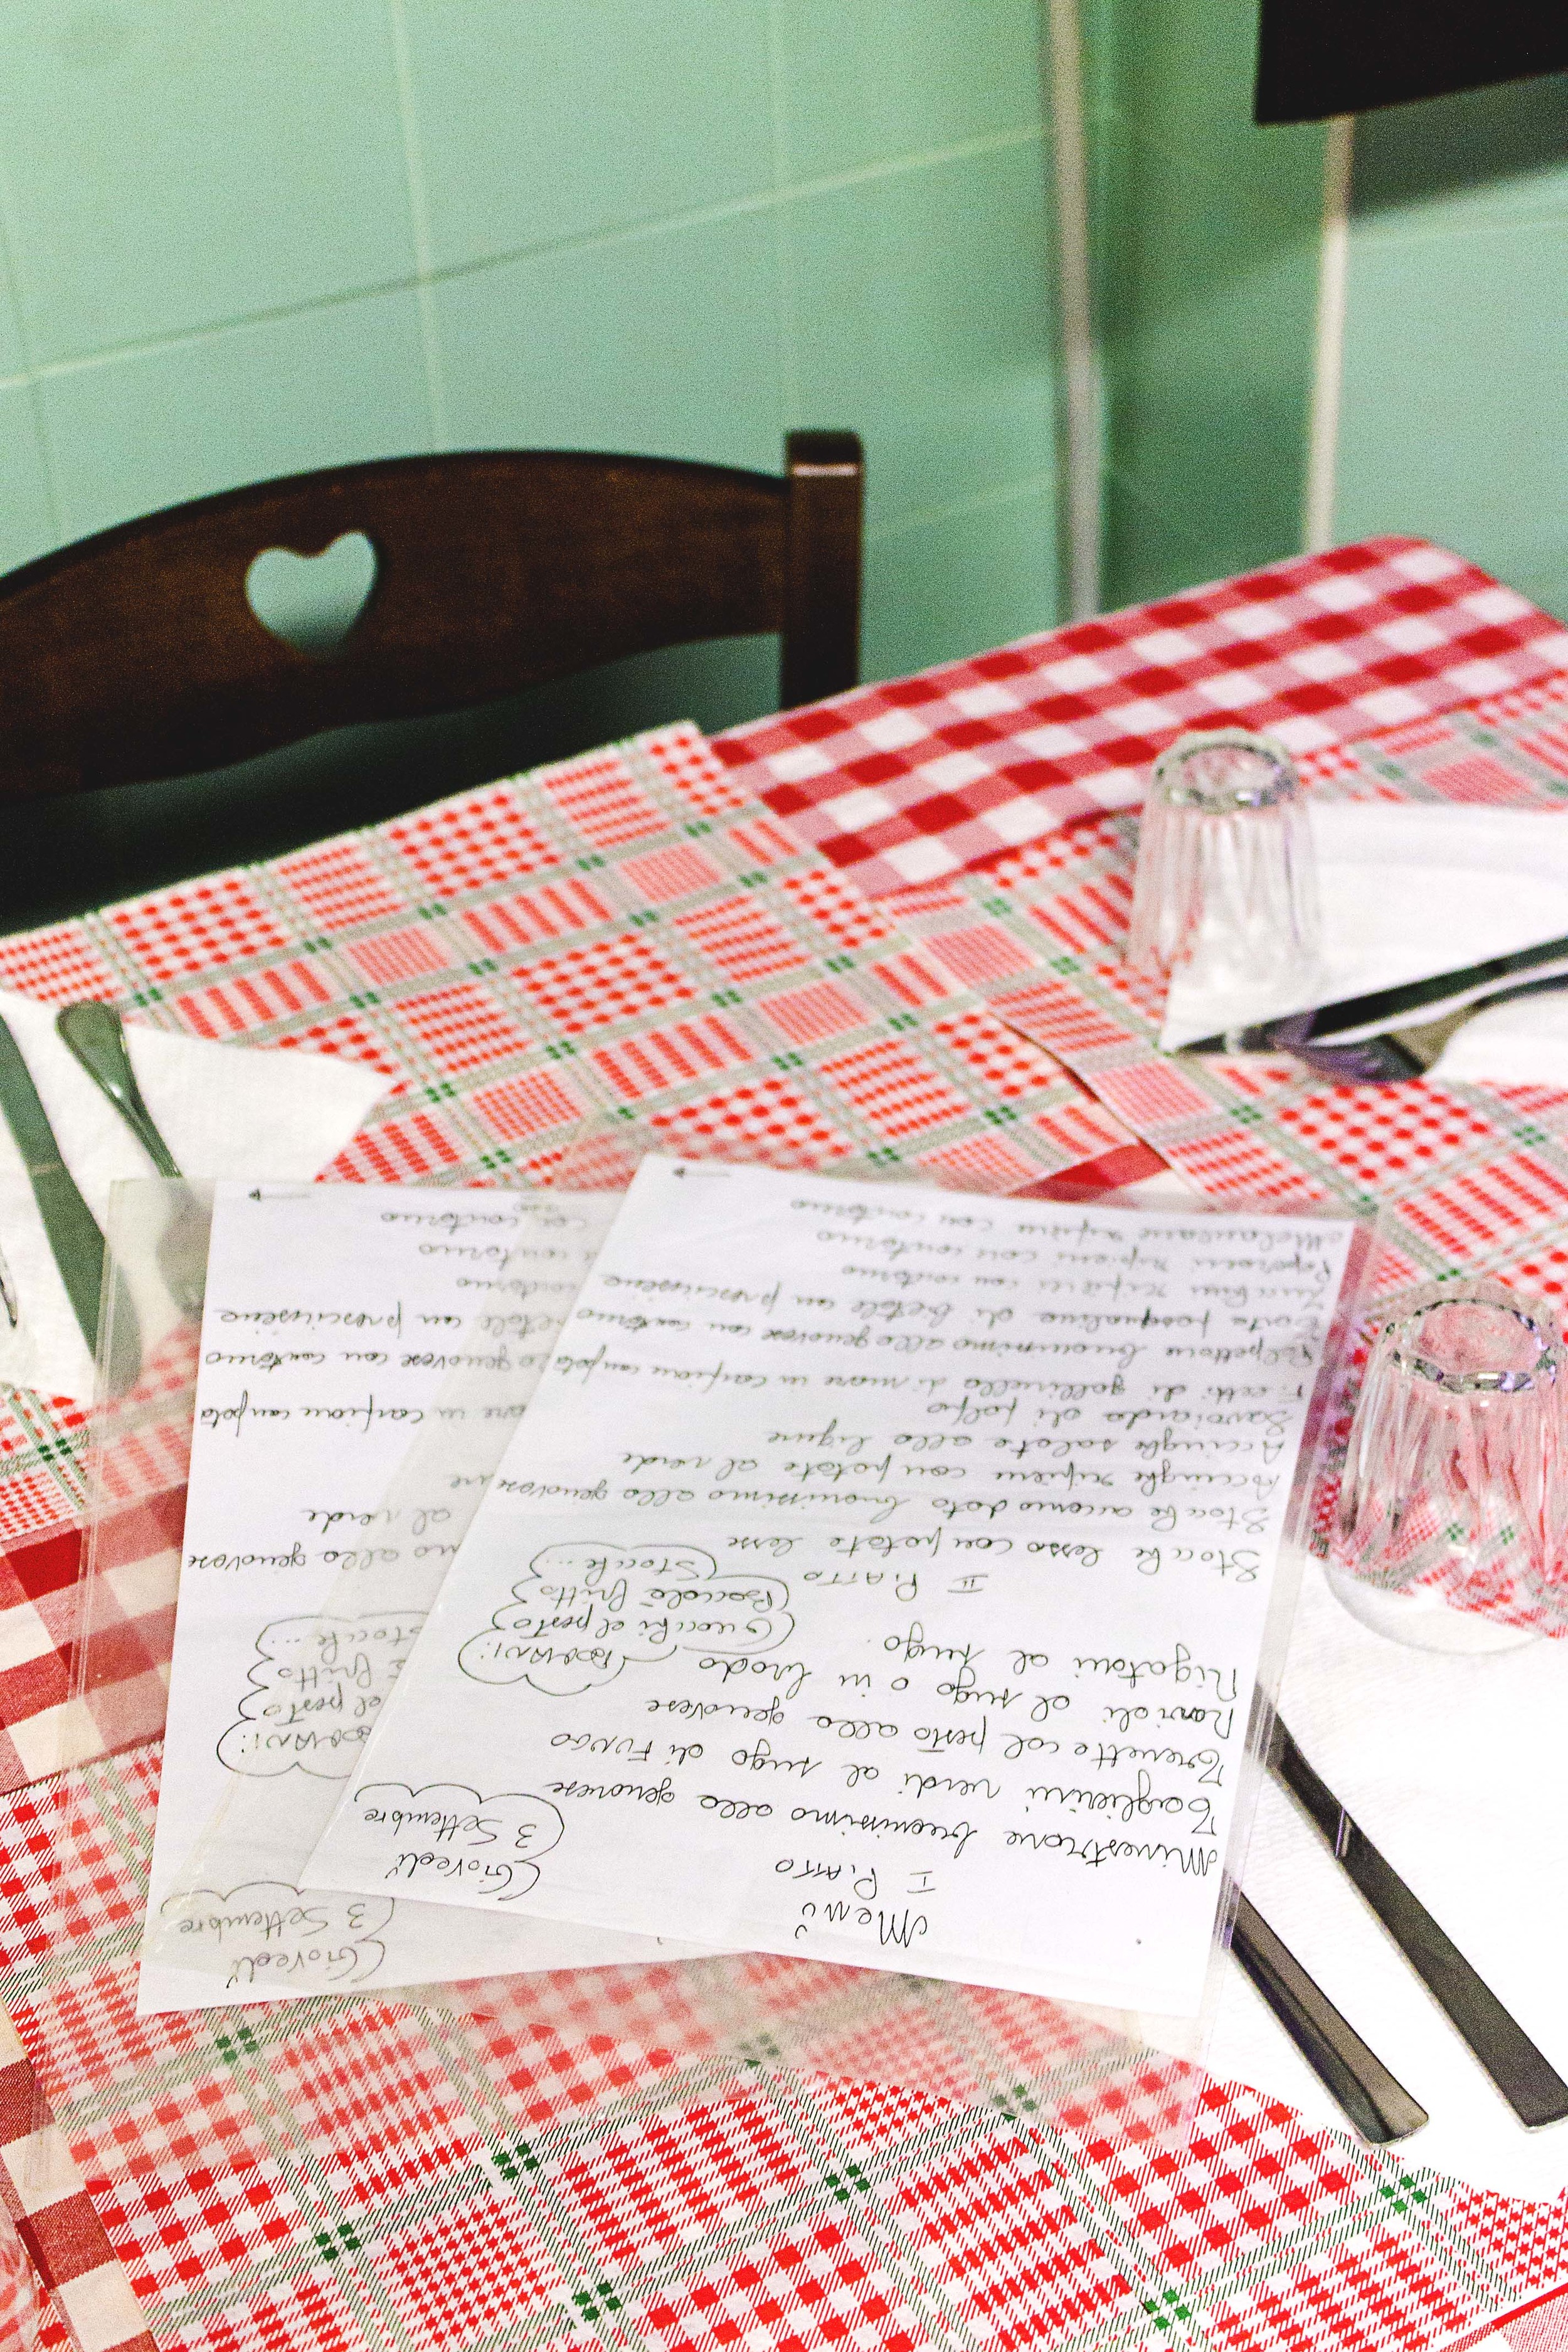 Menù
I PIATTO
Giovedì
3 Settembre
Minestrone buonissimo alla genovese
Taglierini verdi al sugo di FUNGO
Trenette col pesto alla genovese
Ravioli al sugo o in brodo
Rigatoni al sugo.
DOMANI:
Gnocchi al pesto
Baccalà fritto
Stocche...
II PIATTO
Stocche lesso con patate lesse
Stocche accomodato buonissimo alla genovese
Acciughe ripiene con patate al verde
Acciughe salate alla ligure
di polpo
Filetti di gallinella di mare in carpione
Polpettone buonissimo alla genovese con contorno
Torta pasqualina di bietole con prescinseua
Zucchini ripieni con contorno
Peperoni ripieni con contorno
Melanzane ripiene con contorno
Giovedì
3 Settembre
DOMANI:
al pesto
fritto
Stocche...
alla genovese
al verde
in carpione
genovese con contorno
con prescinseua
contorno
contorno
con contorno